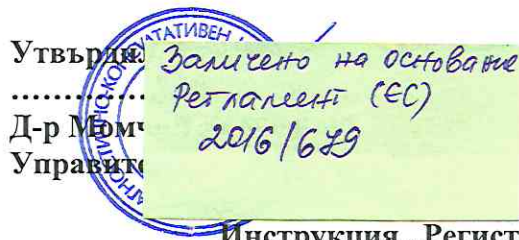 Утвърдил
Заличено на основание
...............
Регламент (ЕС)
Д-р Момч
2016/679
Управите
Инструкция „Регист